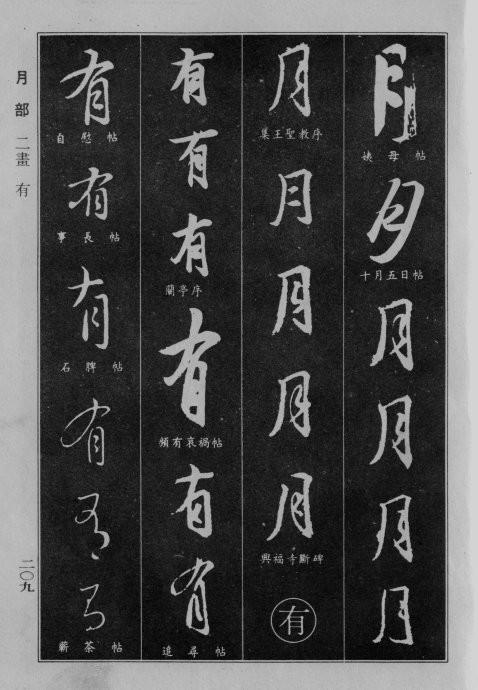 月
姨母帖
月
十月五日帖
月
月
月
月
月
集王聖教序
月
月
月
月
興福寺斷碑
有
有
有
有
蘭亭序
有
頻有哀禍帖
有
有
追尋帖
有
自慰帖
有
事長帖
有
石脾帖
有
有
有
蘄茶帖
月部 二畫 有
二〇九